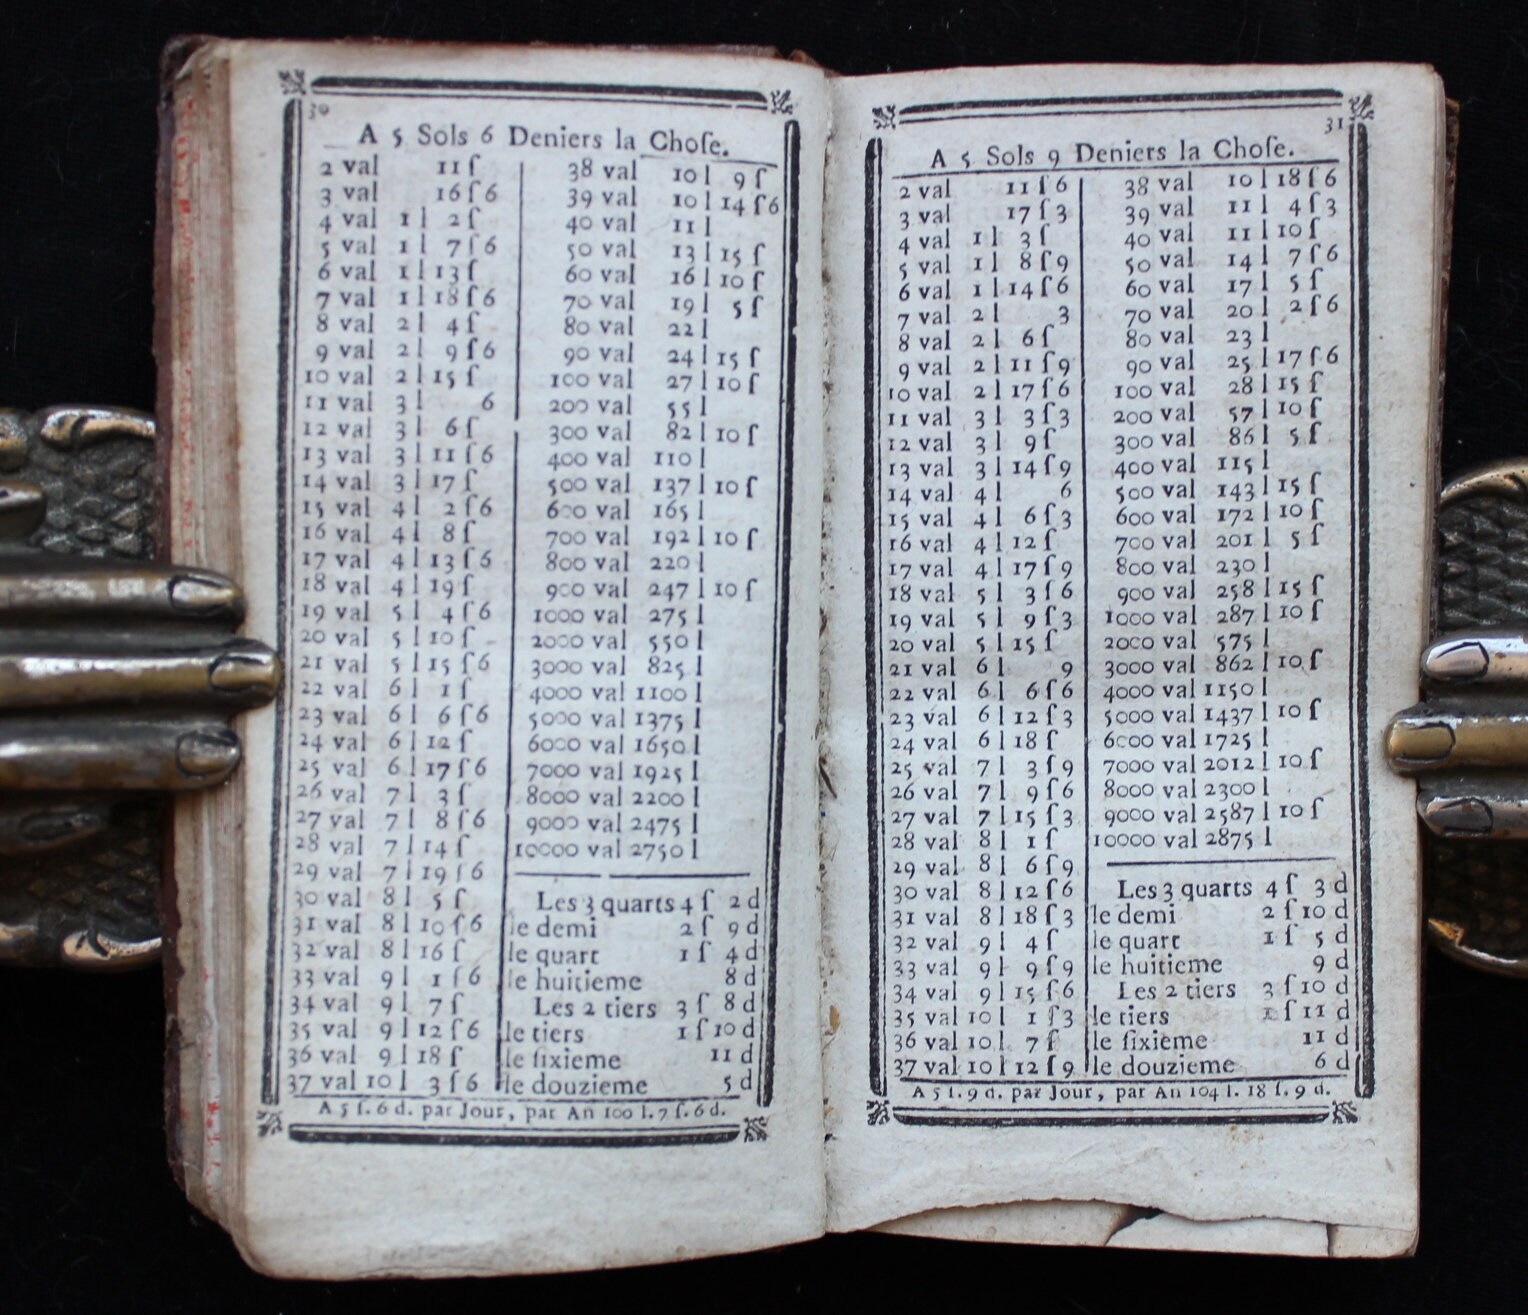 30
A 5 Sols 6 Deniers la Choſe.
2 val 11 ſ
3 val 16 ſ 6
4 val 1 l 2 ſ
5 val 1 l 7 ſ 6
6 val 1 l 13 ſ
7 val 1 l 18 ſ 6
8 val 2 l 4 ſ
9 val 2 l 9 ſ 6
10 val 2 l 15 ſ
11 val 3 l 6
12 val 3 l 6 ſ
13 val 3 l 11 ſ 6
14 val 3 l 17 ſ
15 val 4 l 2 ſ 6
16 val 4 l 8 ſ
17 val 4 l 13 ſ 6
18 val 4 l 19 ſ
19 val 5 l 4 ſ 6
20 val 5 l 10 ſ
21 val 5 l 15 ſ 6
22 val 6 l 1 ſ
23 val 6 l 6 ſ 6
24 val 6 l 12 ſ
25 val 6 l 17 ſ 6
26 val 7 l 3 ſ
27 val 7 l 8 ſ 6
28 val 7 l 14 ſ
29 val 7 l 19 ſ 6
30 val 8 l 5 ſ
31 val 8 l 10 ſ 6
32 val 8 l 16 ſ
33 val 9 l 1 ſ 6
34 val 9 l 7 ſ
35 val 9 l 12 ſ 6
36 val 9 l 18 ſ
37 val 10 l 3 ſ 6
38 val 10 l 9 ſ
39 val 10 l 14 ſ 6
40 val 11 l
50 val 13 l 15 ſ
60 val 16 l 10 ſ
70 val 19 l 5 ſ
80 val 22 l
90 val 24 l 15 ſ
100 val 27 l 10 ſ
200 val 55 l
300 val 82 l 10 ſ
400 val 110 l
500 val 137 l 10 ſ
600 val 165 l
700 val 192 l 10 ſ
800 val 220 l
900 val 247 l 10 ſ
1000 val 275 l
2000 val 550 l
3000 val 825 l
4000 val 1100 l
5000 val 1375 l
6000 val 1650 l
7000 val 1925 l
8000 val 2200 l
9000 val 2475 l
10000 val 2750 l
Les 3 quarts 4 ſ 2 d
le demi 2 ſ 9 d
le quart 1 ſ 4 d
le huitieme 8 d
Les 2 tiers 3 ſ 8 d
le tiers 1 ſ 10 d
le ſixieme 11 d
le douzieme 5 d
A 5 ſ. 6 d. par Jour, par An 100 l. 7 ſ. 6 d.
31
A 5 Sols 9 Deniers la Choſe.
2 val 11 ſ 6
3 val 17 ſ 3
4 val 1 l 3 ſ
5 val 1 l 8 ſ 9
6 val 1 l 14 ſ 6
7 val 2 l 3
8 val 2 l 6 ſ
9 val 2 l 11 ſ 9
10 val 2 l 17 ſ 6
11 val 3 l 3 ſ 3
12 val 3 l 9 ſ
13 val 3 l 14 ſ 9
14 val 4 l 6
15 val 4 l 6 ſ 3
16 val 4 l 12 ſ
17 val 4 l 17 ſ 9
18 val 5 l 3 ſ 6
19 val 5 l 9 ſ 3
20 val 5 l 15 ſ
21 val 6 l 9
22 val 6 l 6 ſ 6
23 val 6 l 12 ſ 3
24 val 6 l 18 ſ
25 val 7 l 3 ſ 9
26 val 7 l 9 ſ 6
27 val 7 l 15 ſ 3
28 val 8 l 1 ſ
29 val 8 l 6 ſ 9
30 val 8 l 12 ſ 6
31 val 8 l 18 ſ 3
32 val 9 l 4 ſ
33 val 9 l 9 ſ 9
34 val 9 l 15 ſ 6
35 val 10 l 1 ſ 3
36 val 10 l 7 ſ
37 val 10 l 12 ſ 9
38 val 10 l 18 ſ 6
39 val 11 l 4 ſ 3
40 val 11 l 10 ſ
50 val 14 l 7 ſ 6
60 val 17 l 5 ſ
70 val 20 l 2 ſ 6
80 val 23 l
90 val 25 l 17 ſ 6
100 val 28 l 15 ſ
200 val 57 l 10 ſ
300 val 86 l 5 ſ
400 val 115 l
500 val 143 l 15 ſ
600 val 172 l 10 ſ
700 val 201 l 5 ſ
800 val 230 l
900 val 258 l 15 ſ
1000 val 287 l 10 ſ
2000 val 575 l
3000 val 862 l 10 ſ
4000 val 1150 l
5000 val 1437 l 10 ſ
6000 val 1725 l
7000 val 2012 l 10 ſ
8000 val 2300 l
9000 val 2587 l 10 ſ
10000 val 2875 l
Les 3 quarts 4 ſ 3 d
le demi 2 ſ 10 d
le quart 1 ſ 5 d
le huitieme 9 d
Les 2 tiers 3 ſ 10 d
le tiers 1 ſ 11 d
le ſixieme 11 d
le douzieme 6 d
A 5 ſ. 9 d. par Jour, par An 104 l. 18 ſ. 9 d.